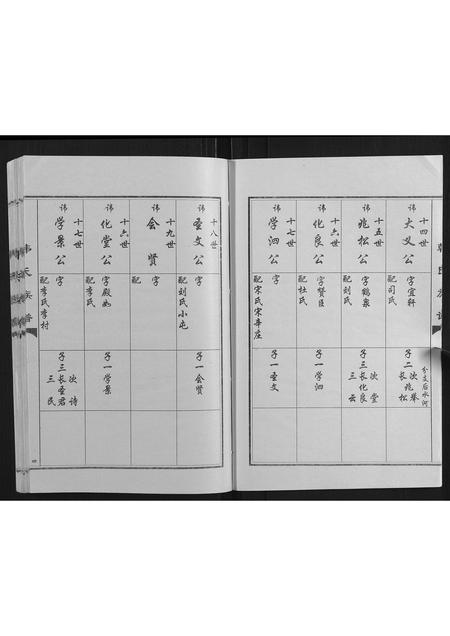 十四世
讳大义公
字宜轩
配司氏
子二
长兆松
次兆举
分支后水河
十五世
讳兆松公
字鹤泉
配刘氏
子三
长化良
次堂
三云
十六世
讳化良公
字贤臣
配杜氏
子一学泗
十七世
讳学泗公
字
配宋氏宋辛庄
子一圣文
十八世
讳圣文公
字
配刘氏小屯
子一会贤
十九世
讳会贤公
字
配
十六世
讳化堂公
字殿如
配李氏
子一学景
十七世
讳学景公
字
配李氏李村
子三
长圣君
次诗
三民